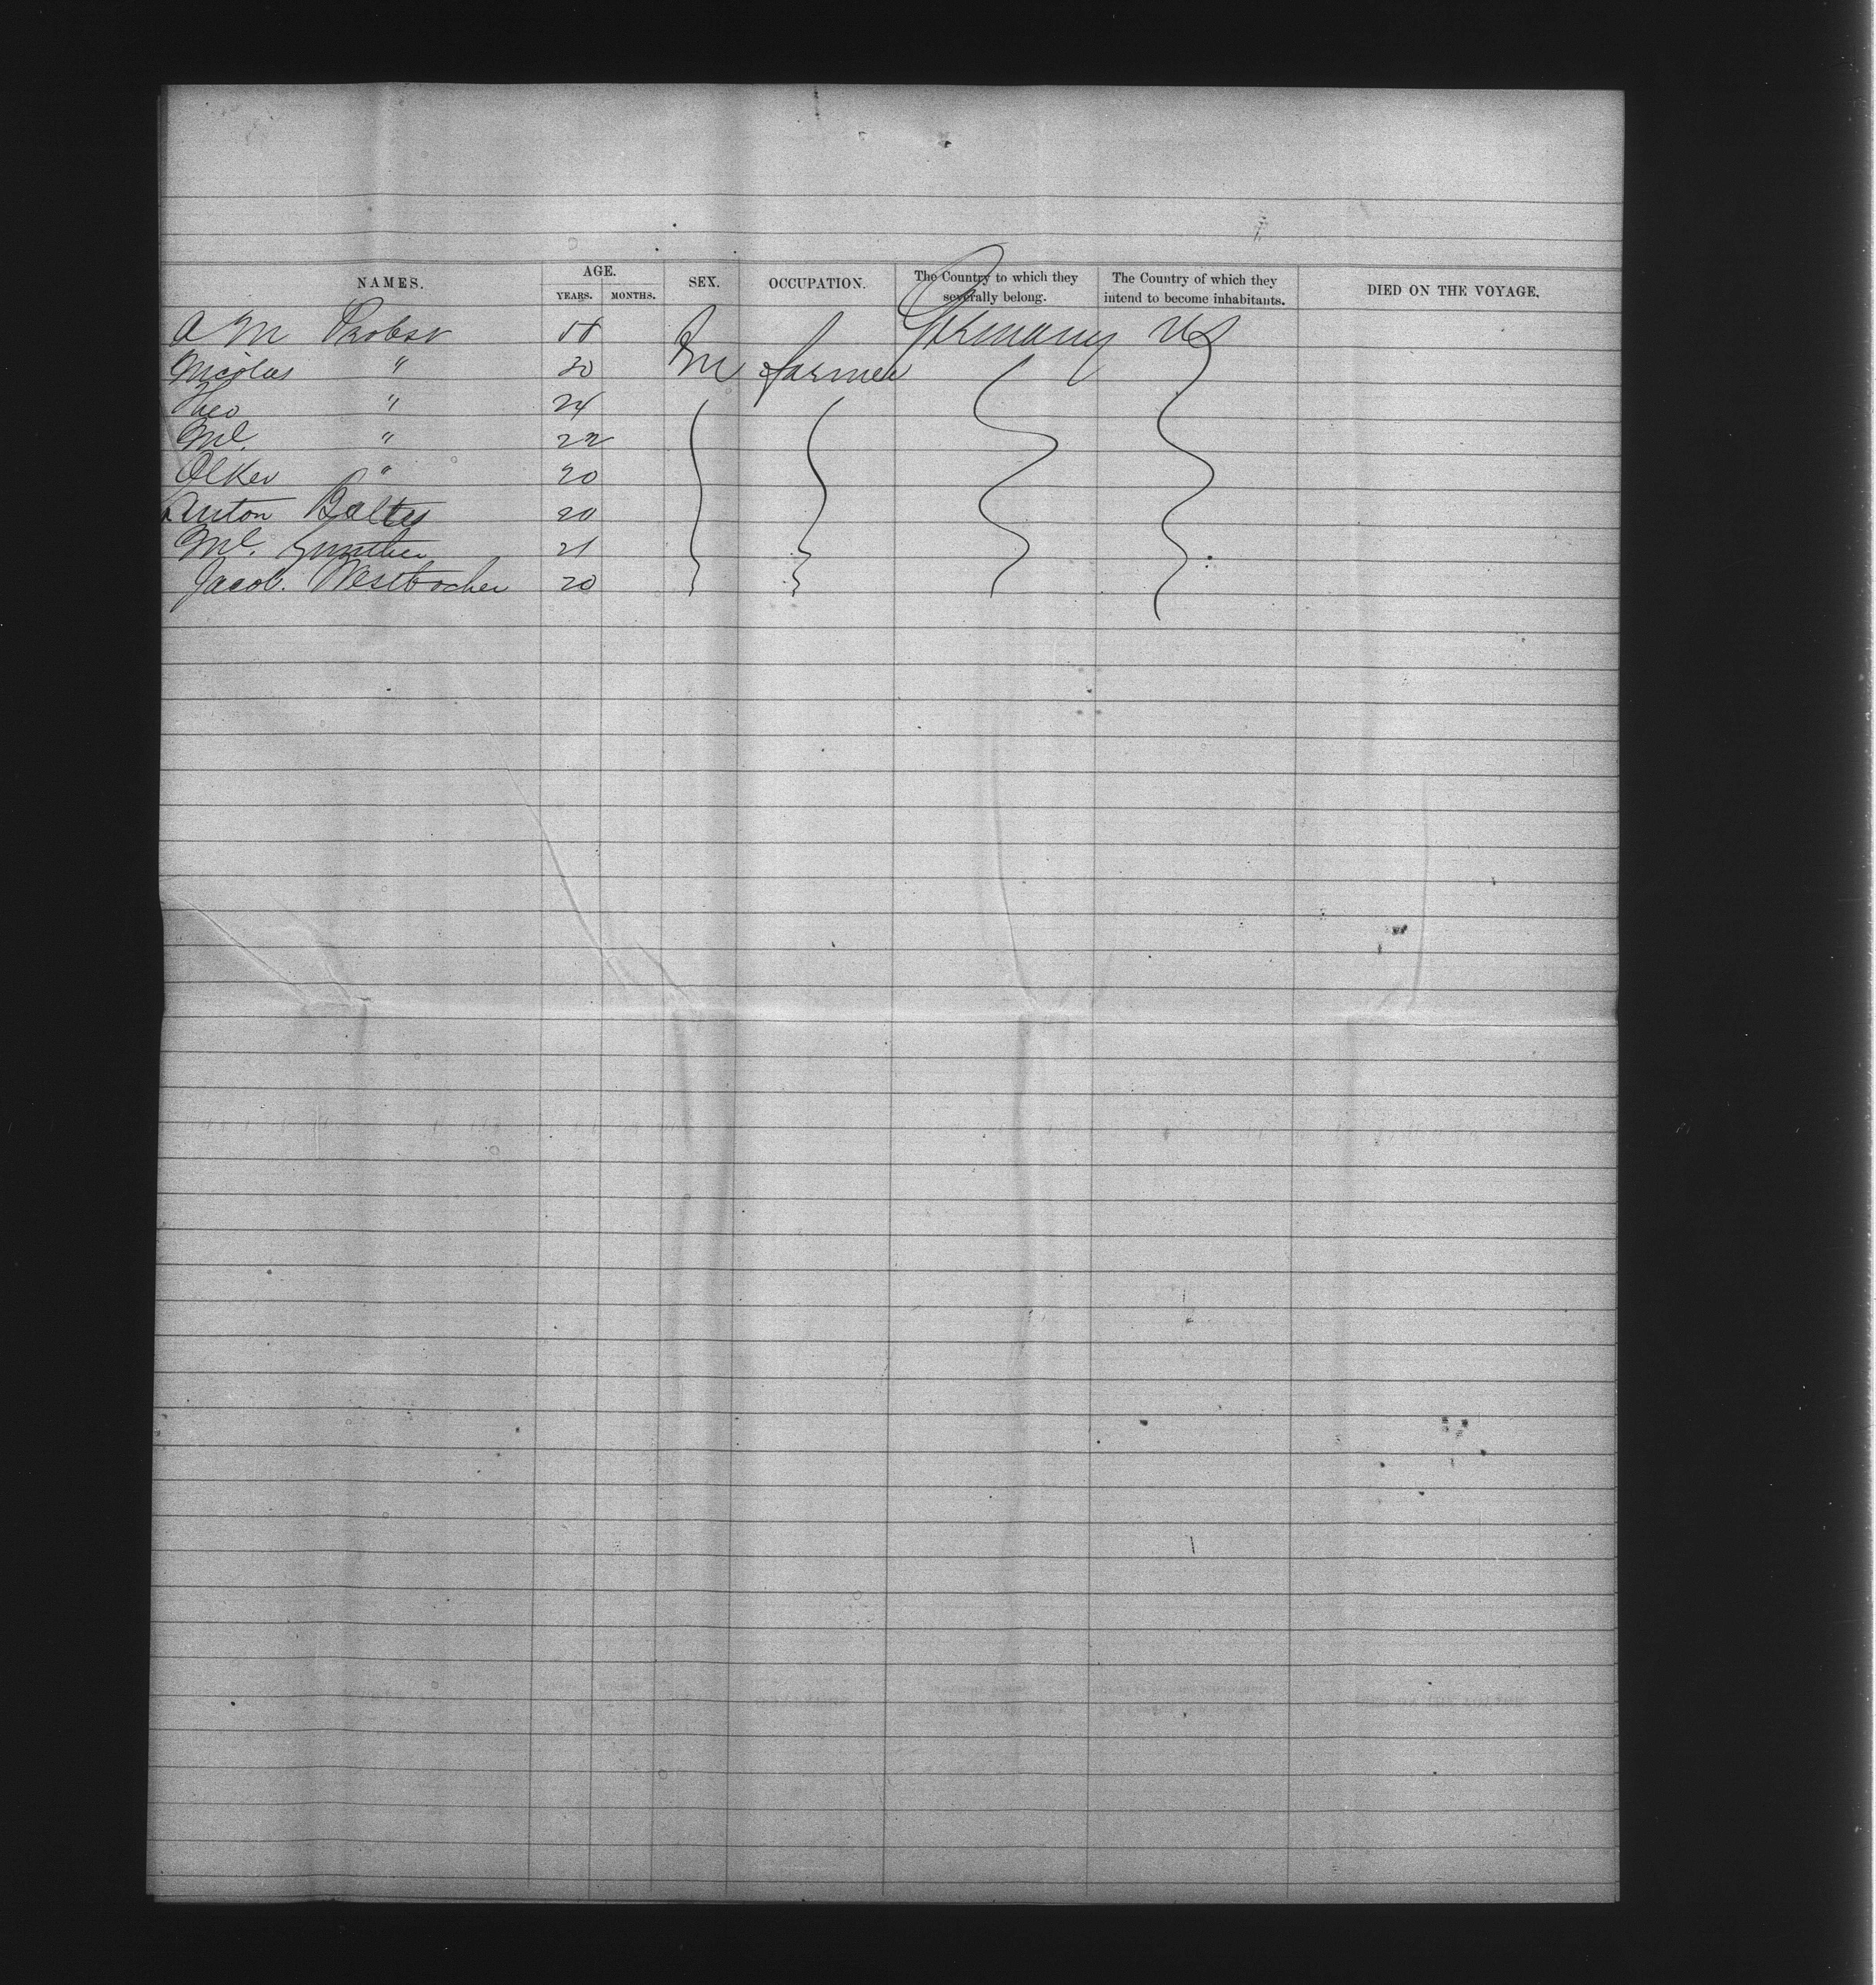 NAMES. AGE. YEARS. MONTHS. SEX. OCCUPATION. The Country to which they severally belong. The Country of which they intend to become inhabitants. DIED ON THE VOYAGE.
A M Probst Germany US
Nicolas " 30 M farmer
Theo " 24
Ml. " 22
" 20
Anton Baltes 20
Ml. Gunther 21
Jacob. Westbocher 20